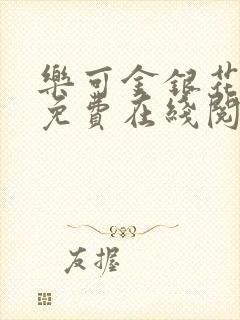 樂可金銀花
免費在綫閱
友握